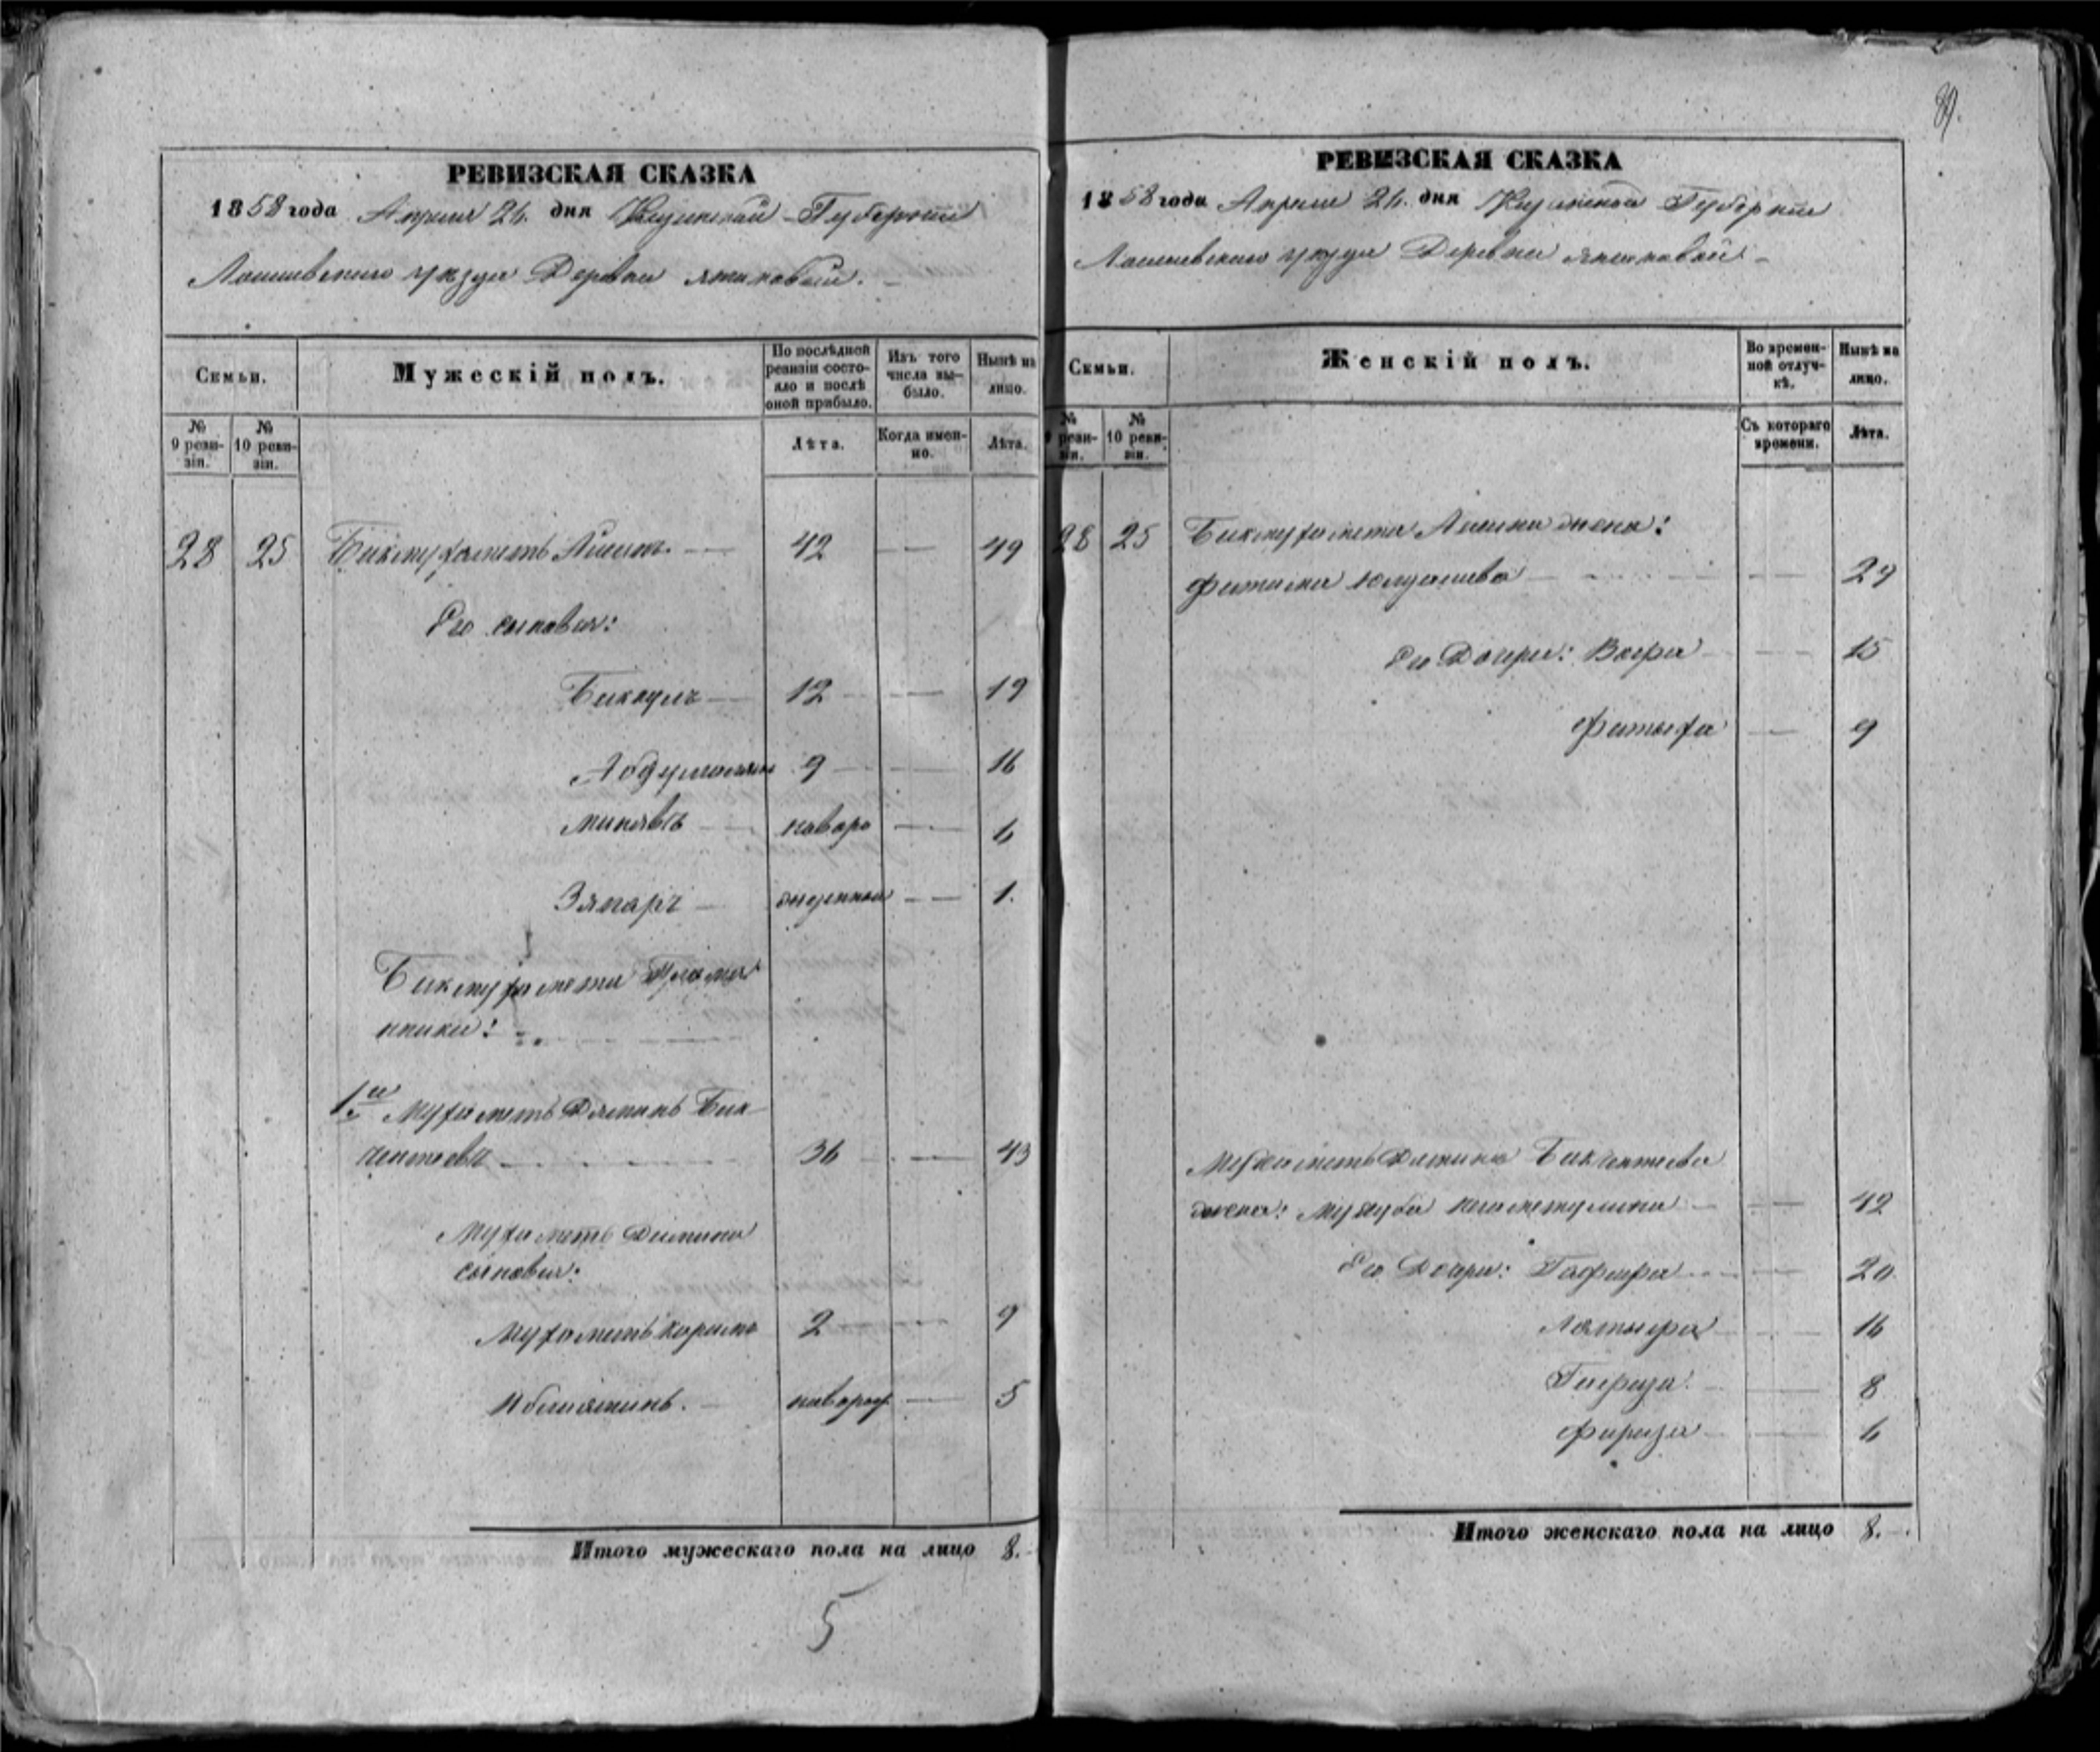 89.
РЕВИЗСКАЯ СКАЗКА
1858 года Апреля 26. дня Казанской Губернии
Лаишевскаго уезда Деревни Янтиковой.
Семьи.
Мужескій полъ.
По послѣдней ревизіи состояло и послѣ оной прибыло.
Изъ того числа выбыло.
Нынѣ на лицо.
№ 9 ревизіи.
№ 10 ревизіи.
Лѣта.
Когда именно.
Лѣта.
28 25 Бикмухаметъ 42 — 49
Его сыновья:
Биккулъ — 12 — 19
9 — 16
Минявъ — наворо — 6
Зягаръ — жденной — 1.
Бикмухамета Племя
нники:
1й Мухаметъ Дяминъ Бик
чентаевъ 36 — 43
Мухаметъ Дямина
сыновья:
Мухаметъ Каримъ 2 — 9
навород — 5
Итого мужескаго пола на лицо 8.
5
РЕВИЗСКАЯ СКАЗКА
1858 года Апреля 26. дня Казанской Губернии
Лаишевскаго уезда Деревни Янтиковой
Семьи.
Женскій полъ.
Во временной отлучкѣ.
Нынѣ на лицо.
№ 9 ревизіи.
№ 10 ревизіи.
Съ котораго времени.
Лѣта.
28 25 Бикмухамета жена:
Фатима Юлдашева — 29
Ея Дочери: Вафа — 15
Фатыха — 9
Мухаметъ Дямина Бикчентаева
жена: — 42
Его Дочери: Гафифа — 20
Латыфа — 16
Гафиза — 8
Фариза — 6
Итого женскаго пола на лицо 8.